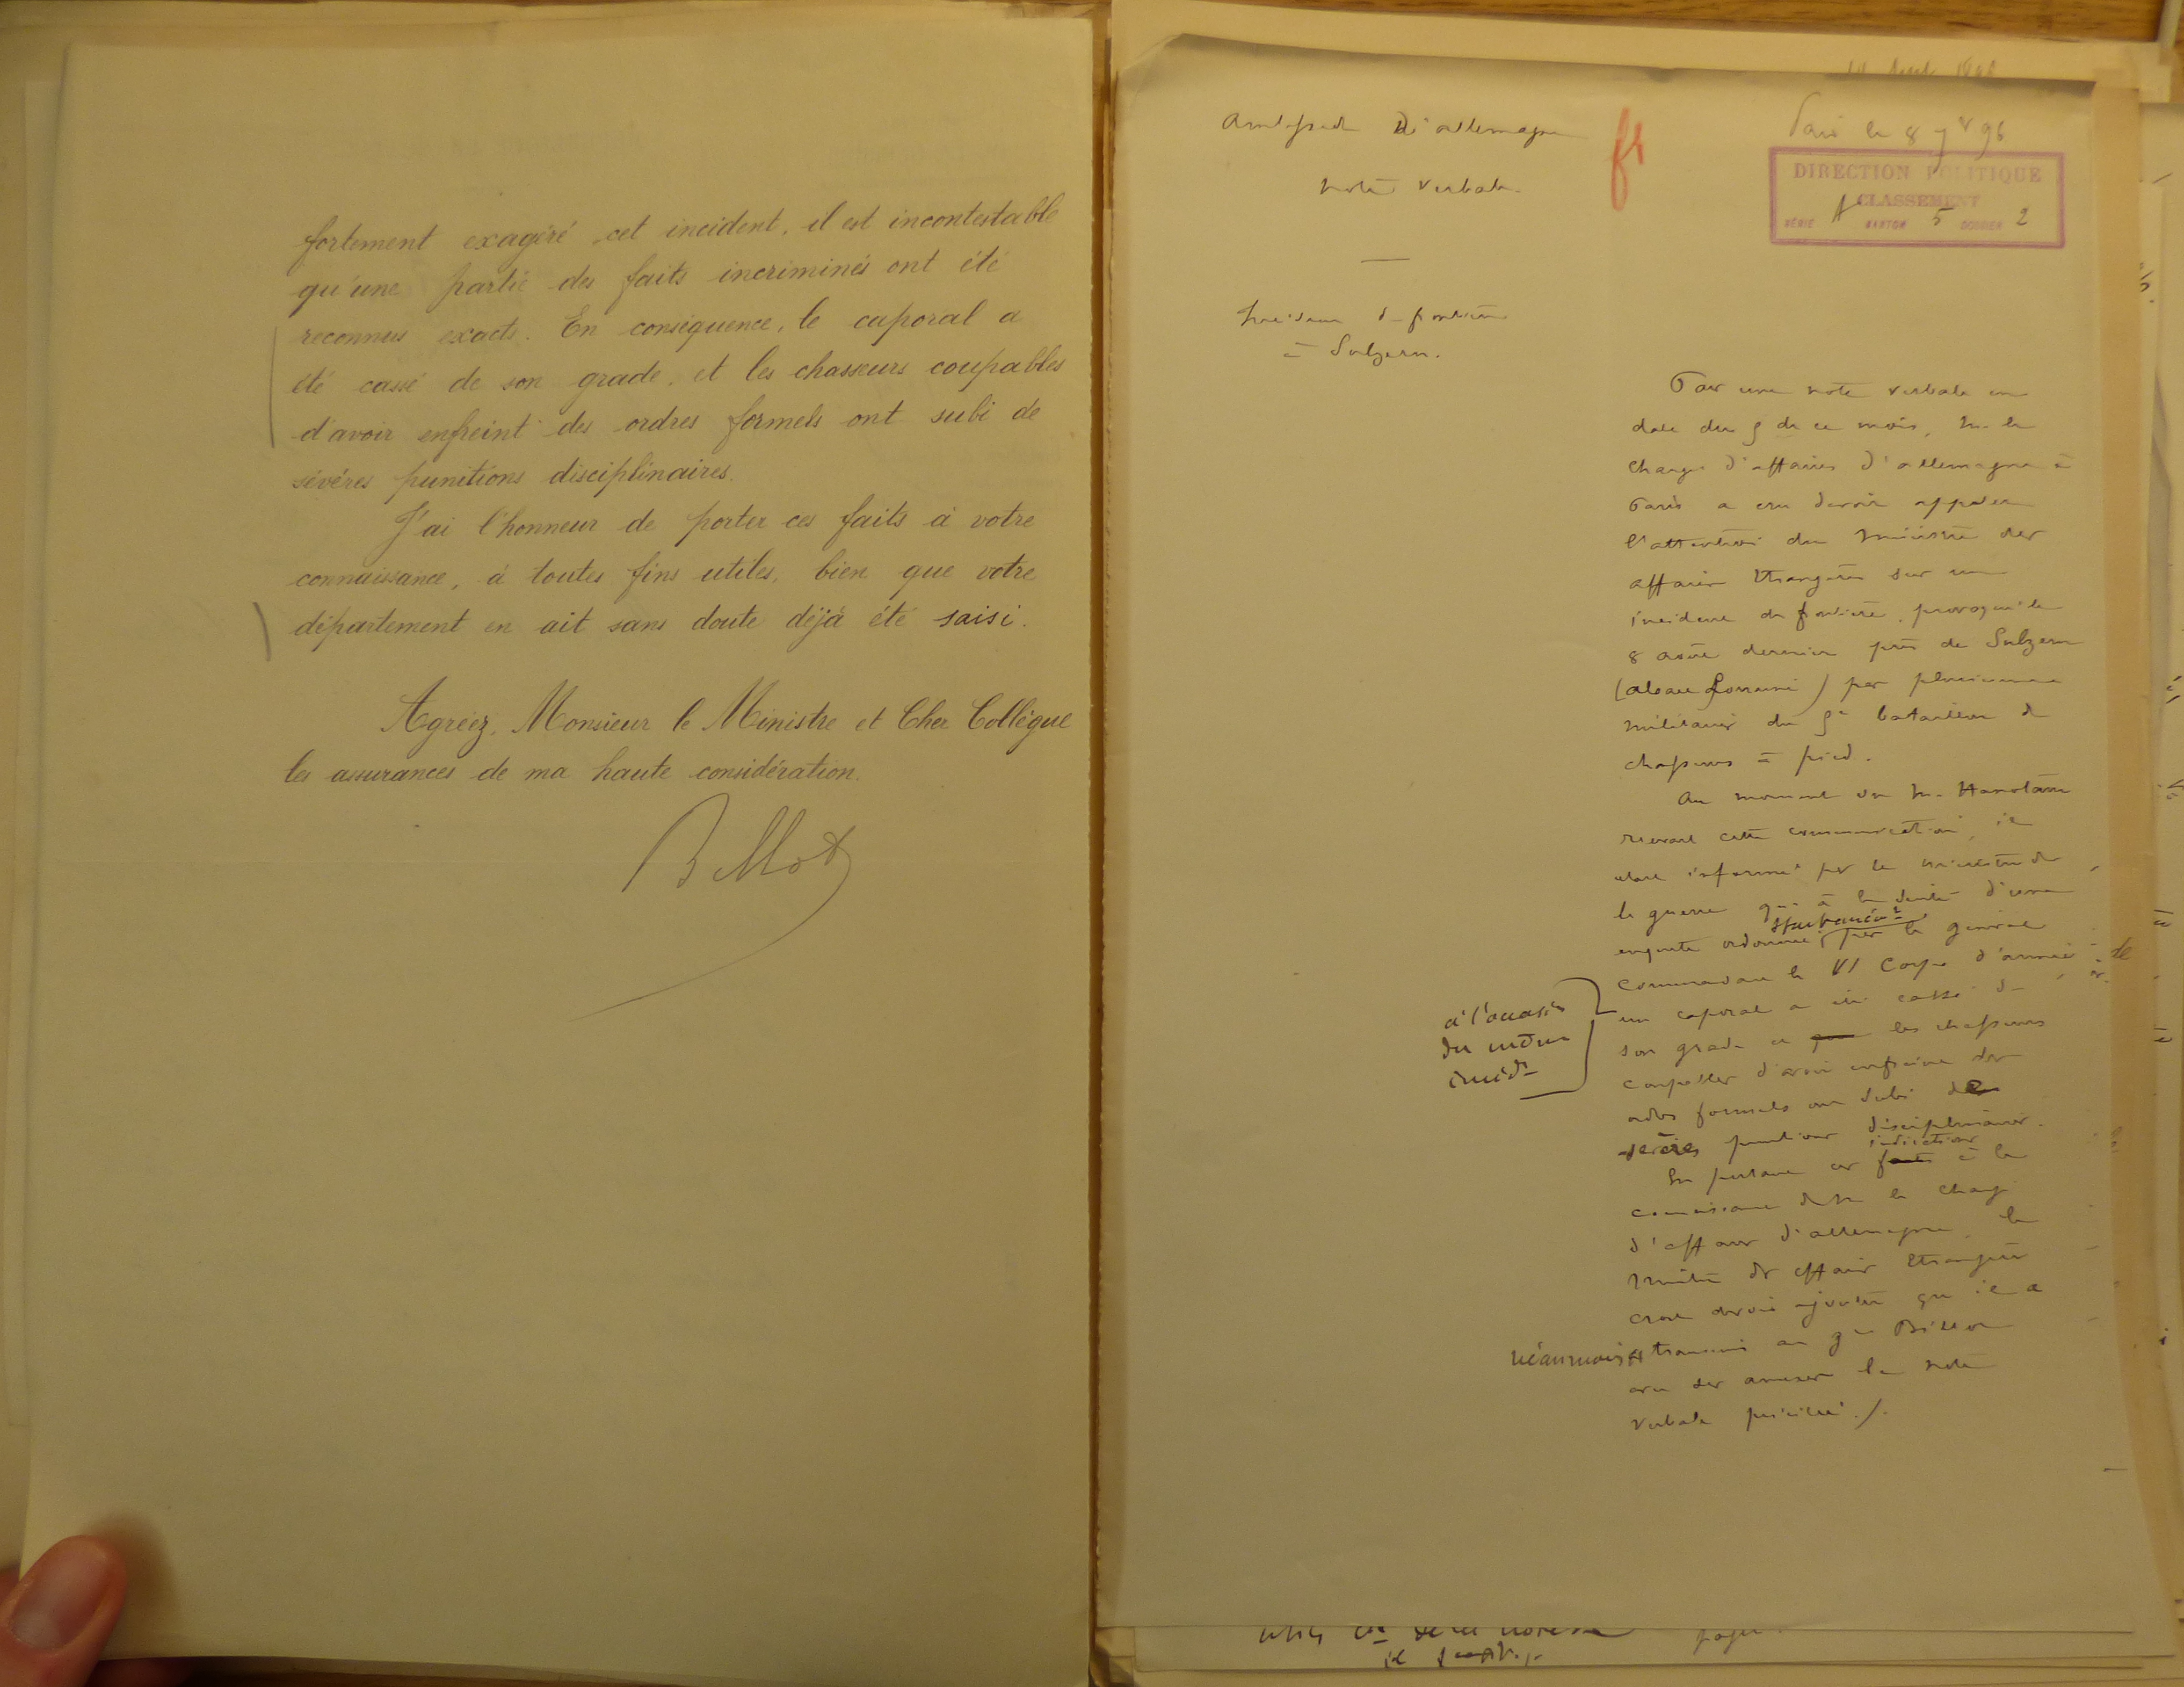 fortement exagéré cet incident, il est incontestable
qu'une partie des faits incriminés ont été
reconnus exacts. En conséquence, le caporal a
été cassé de son grade, et les chasseurs coupables
d'avoir enfreint des ordres formels ont subi de
sévères punitions disciplinaires.
J'ai l'honneur de porter ces faits à votre
connaissance, à toutes fins utiles, bien que votre
département en ait sans doute déjà été saisi.
Agréez, Monsieur le Ministre et Cher Collègue
les assurances de ma haute considération.
Billot
Paris le 8 7bre 96
DIRECTION POLITIQUE
CLASSEMENT
SÉRIE A CARTON 5 DOSSIER 2
fr
d'Allemagne
Note verbale
Incident de frontière
à Sulzern.
Par une note verbale en
date du 5 de ce mois, M. le
Chargé d'affaires d'Allemagne à
Paris a cru devoir appeler
l'attention du Ministre des
Affaires Etrangères sur un
incident de frontière, provoqué le
8 août dernier près de Sulzern
(Alsace Lorraine) par plusieurs
militaires du 5e bataillon de
chasseurs à pied.
Au moment où M. Hanotaux
recevait cette communication, il
était informé par le ministre de
la guerre qu'à la suite d'une
enquête ordonnée spontanément par le général
commandant le VI Corps d'armée
un caporal a été cassé de
à l'occasion
du même
incidt
son grade et les chasseurs
coupables d'avoir enfreint des
ordres formels ont subi de
sévères punitions disciplinaires.
En portant ces indications à la
connaissance de M. le Chargé
d'affaires d'Allemagne, le
Ministre des Affaires Etrangères
croit devoir ajouter qu'il a
néanmoins transmis au gal Billot
la note
verbale précitée ./.